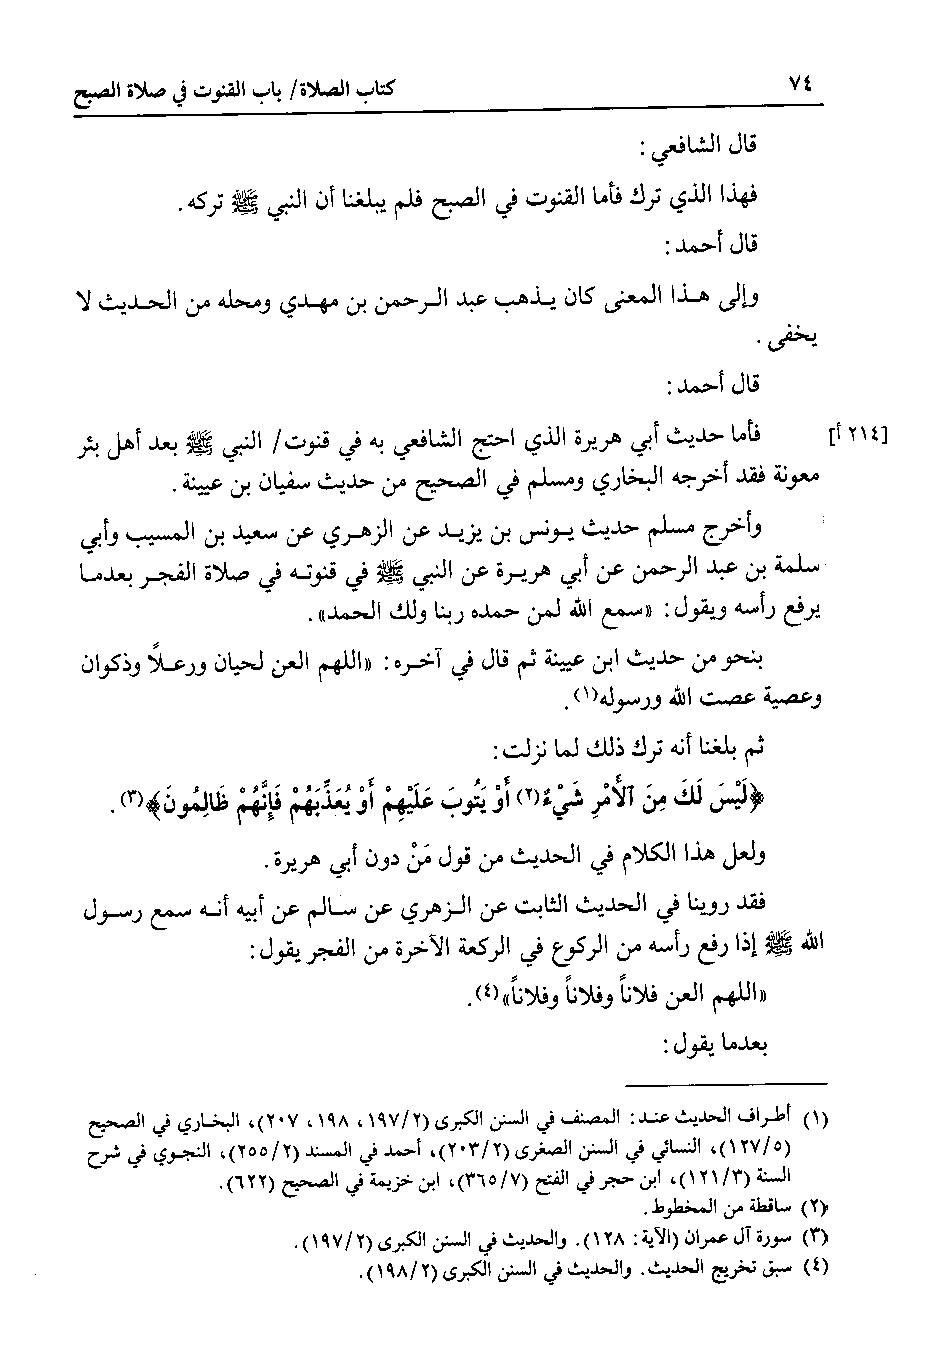 ٧٤ كتاب الصلاة/ باب القنوت في صلاة الصبح
قال الشافعي :
فهذا الذي ترك فأما القنوت في الصبح فلم يبلغنا أن النبي ﷺ تركه .
قال أحمد :
وإلى هـذا المعنى كان يـذهب عبد الـرحمن بن مهـدي ومحله من الحـديث لا
يخفى .
قال أحمد :
[٢١٤ أ] فأما حديث أبي هريرة الذي احتج الشافعي به في قنوت/ النبي ﷺ بعد أهل بئر
معونة فقد أخرجه البخاري ومسلم في الصحيح من حديث سفيان بن عيينة .
وأخرج مسلم حديث يـونس بن يزيـد عن الزهـري عن سعيد بن المسيب وأبي
سلمة بن عبد الرحمن عن أبي هريـرة عن النبي ﷺ في قنوتـه في صلاة الفجـر بعدمـا
يرفع رأسه ويقول : «سمع الله لمن حمده ربنا ولك الحمد» .
بنحو من حديث ابن عيينة ثم قال في آخـره : «اللهم العن لحيان ورعـلاً وذكوان
وعصية عصت الله ورسوله(١) .
ثم بلغنا أنه ترك ذلك لما نزلت :
﴿لَيْسَ لَكَ مِنَ ٱلأَمْرِ شَيْءٌ(٢) أَوْ يَتُوبَ عَلَيْهِمْ أَوْ يُعَذِّبَهُمْ فَإِنَّهُمْ ظَالِمُونَ﴾(٣) .
ولعل هذا الكلام في الحديث من قول مَنْ دون أبي هريرة .
فقد روينا في الحديث الثابت عن الـزهري عن سـالم عن أبيه أنـه سمع رسـول
الله ﷺ إذا رفع رأسه من الركوع في الركعة الآخرة من الفجر يقول :
«اللهم العن فلاناً وفلاناً وفلاناً»(٤) .
بعدما يقول :
(١) أطراف الحديث عنـد : المصنف في السنن الكبرى (١٩٧/٢، ١٩٨، ٢٠٧)، البخاري في الصحيح
(١٢٧/٥)، النسائي في السنن الصغرى (٢٠٣/٢)، أحمد في المسند (٢٥٥/٢)، النجوي في شرح
السنة (١٢١/٣)، ابن حجر في الفتح (٣٦٥/٧)، ابن خزيمة في الصحيح (٦٢٢).
(٢) ساقطة من المخطوط.
(٣) سورة آل عمران (الآية: ١٢٨). والحديث في السنن الكبرى (١٩٧/٢).
(٤) سبق تخريج الحديث. والحديث في السنن الكبرى (١٩٨/٢).